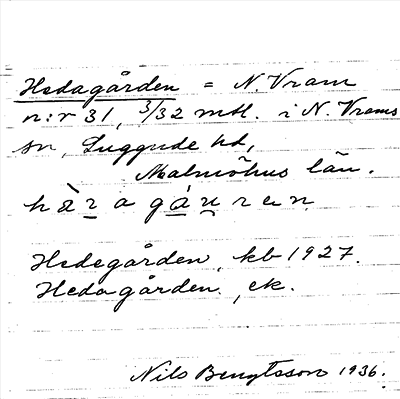 Hedagården = N. Vram
n:r 31, 3/32 mtl. i N. Vrams
sn, Luggude hd,
Malmöhus län.
hàragáuren
Hedegården, kb 1927.
Hedagården, ek.
Nils Bengtsson 1936.